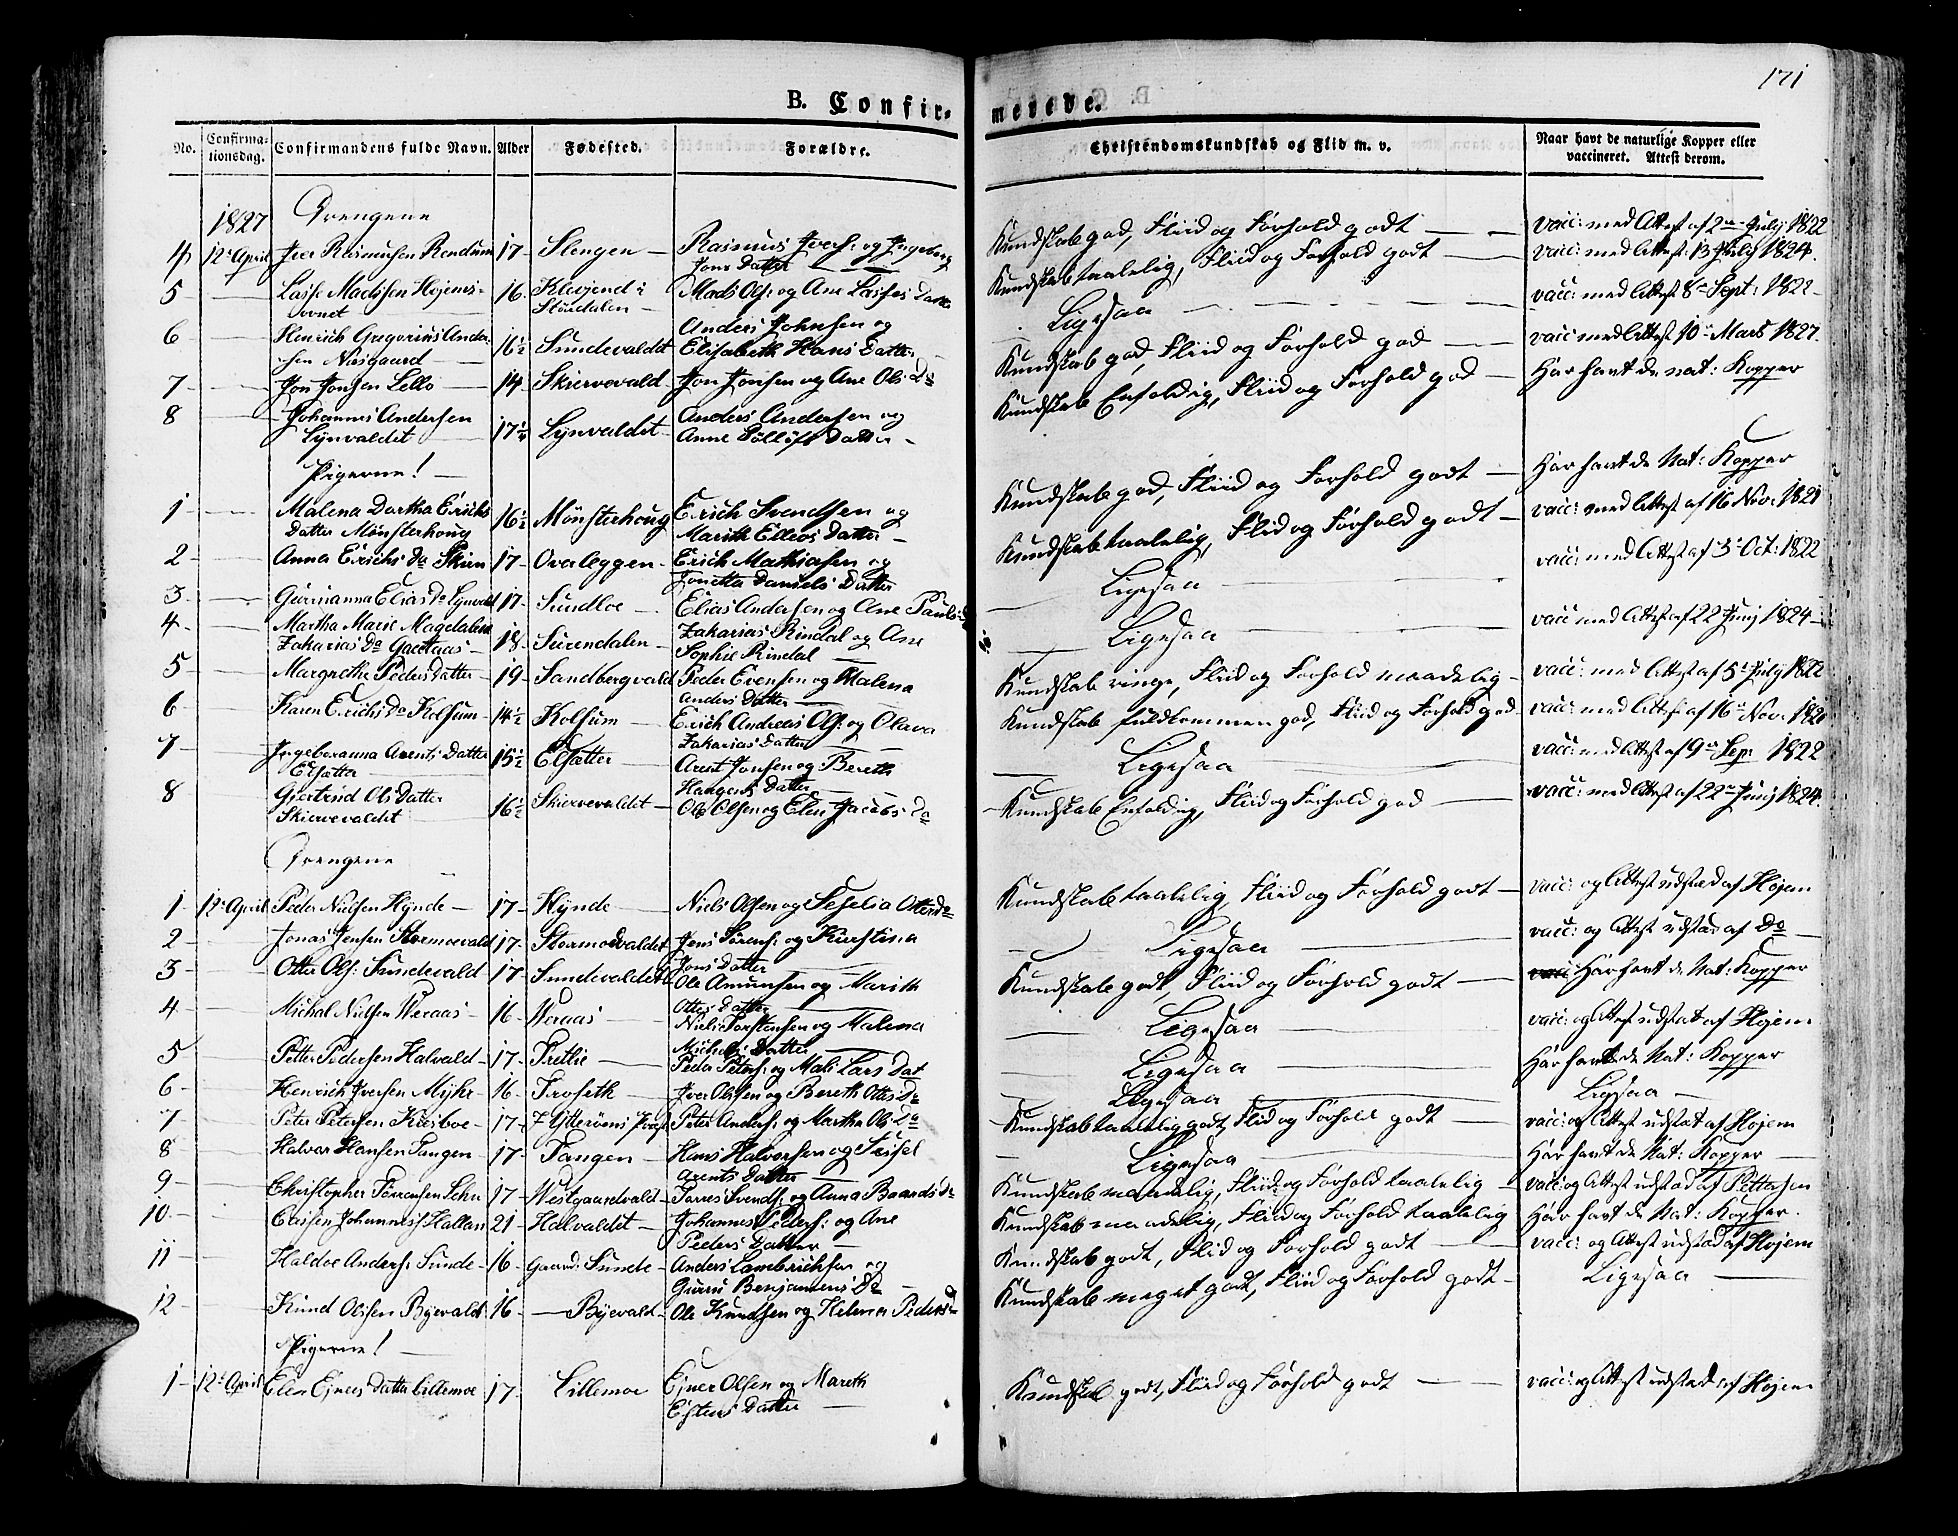 171
B. Confir-
merede.
No.
Confirma-
tionsdag.
Confirmandens fulde Navn.
Alder
Fødested.
Forældre.
Christendomskundskab og Flid m. v.
Naar havt de naturlige Kopper eller
vaccineret. Attest derom.
1827 Drengene
4 12te April Iver Rasmusen Rendum 17 Slengen Rasmus Ivers: og Ingeborg
Jons Datter
Kundskab god, Fliid og Forhold godt vacc: med Attest af 2den July 1822
5 Lasse Madsen Hojems- 16 Klevjend i Mads Ols: og Ane Lasses Datt
ovnet Størdalen
Kundskab taalelig, Fliid og Forhold godt vacc: med Attest: 13 July 1824
6 Henrich Gregorius Ander- 16½ Sundevaldet Anders Johnsen og
sen Nusgaard Elisabeth Hans Datter
Ligesaa vacc: med Attest 8de Sept: 1822
7 Jon Jonsen Lello 14 Skiervevald Jon Jonsen og Ane Ols Do
Kundskab god, Fliid og Forhold god vacc: med Attest 10de Mars 1827
8 Johannes Andersen 17¼ Lynvaldet Anders Andersen og
Lynvaldet Anne Tollofs Datter
Kundskab Enfoldig, Fliid og Forhold god Har havt de nat: Kopper
Pigerne!
1 Malena Dortha Erichs 16½ Mønsterhoug Erich Svendsen og
Datter Mønsterhoug Marith Ellevs Datter
Kundskab god, Fliid og Forhold godt Har havt de Nat: Kopper
2 Anna Erichs Da Skien 17 Overleggen Erich Mathiasen og
Jonetta Daniels Datter
Kundskab taalelig, Fliid og Forhold godt vacc: med Attest af 16 Nov: 1821
3 Gurrianna Elias Da Lynvald 17 Sundloe Elias Andersen og Ane Pauls Da
Ligesaa vacc: med Attest af 3de Oct: 1822
4 Martha Marie Magdalena 18 Surendalen Zakarias Rindal og Ane
Zakarias Da Gaultaas Sophie Rindal
Ligesaa vacc med Attest af 22 Junj 1824
5 Margrethe Peders Datter 19 Sandbergvald Peder Evensen og Malena
Anders Datter
Kundskab ringe, Fliid og Forhold maadelig vacc: med Attest af 5te July 1822
6 Karen Erichs Da Kolsum 14½ Kolsum Erich Andreas Ols: og Olava
Zakarias Datter
Kundskab fuldkommen god, Fliid og Forhold god vacc: med Attest af 16de Nov: 1821
7 Ingeboranna Arents Datter 15½ Elsætter Arent Jonsen og Bereth
Elsætter Haagens Datter
Ligesaa vacc: med Attest af 9de Sep: 1822
8 Giertrud Ols Datter 16½ Skiervevaldet Ole Olsen og Elen Jacobs Da
Skiervevaldet
Kundskab Enfoldig, Fliid og Forhold god vacc: med Attest af 22de Junj 1824
Drengene
1 12te April Peder Nielsen Hynde 17 Hynde Niels Olsen og Seselia Otters Da
Kundskab taalelig, Fliid og Forhold godt vacc: og Attest udstæd af Hojem
2 Jonas Jensen Stormoevald 17 Stormoevaldet Jens Sørens: og Kierstina
Jons Datter
Ligesaa vacc: og Attest udstæd af Do
3 Otter Ols: Sundevald 17 Sundevaldet Ole Amunsen og Marith
Otters Datter
Kundskab godt, Fliid og Forhold godt Har havt de Nat: Kopper
4 Michal Nielsen Weraas 16 Weraas Niels Torstensen og Malena
Michels Datter
Ligesaa vacc: og Attest udstæt af Hojem
5 Petter Pedersen Halvald 17 Tretlie Peder Peters: og Mali Lars Dat
Ligesaa Har havt de Nat: Kopper
6 Henrich Iversen Myhr 16 Troseth Iver Olsen og Bereth Otters Da
Ligesaa Ligesaa
7 Peter Petersen Kiesboe 17 I Ytterøens Præst Peter Anders: og Martha Ols Da
Kundskab taalelig godt, Fliid og Forhold godt vacc: og Attest udstæt af Hojem
8 Halvor Hansen Tangen 17 Tangen Hans Halvorsen og Sissel
Arents Datter
Ligesaa Har havt de Nat: Kopper
9 Christopher Torresen Lehn 17 Westgaardvald Torres Svends: og Anna Baards Da
Kundskab maadelig, Fliid og Forhold taalelig vacc: og Attest udstæd af Pettersen
10 Johannes: Hallan 21 Halvaldet Johannes Peders: og Ane
Peders Datter
Kundskab maadelig, Fliid og Forhold taalelig Har havt de Nat: Kopper
11 Haldoe Anders: Sunde 16 Gaard: Sunde Anders Lambrichsen og
Gurru Benjamens Da
Kundskab godt, Fliid og Forhold godt vacc: og Attest udstæd af Hojem
12 Knud Olisen Byevald 16 Byevald Ole Knudsen og Helena Peders Da
Kundskab meget godt, Fliid og Forhold godt Ligesaa
Pigerne!
1 12te April Elen Ejners Datter Lillemoe 17 Lillemoe Ejner Olsen og Mareth
Estens Datter
Kundskab godt, Fliid og Forhold godt vacc: og Attest udstæd af Hojem